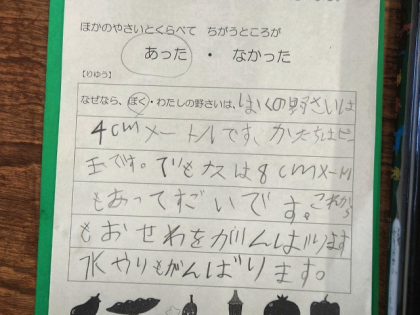 ほかのやさいとくらべて ちがうところが
あった ・ なかった
【りゆう】
なぜなら、ぼく・わたしの野さいは、ぼくの野さいは
4cmメートルです、かたちはビー
玉です。でもナスは8cmメートル
もあってすごいです。これから
もおせわをがんばります
水やりもがんばります。